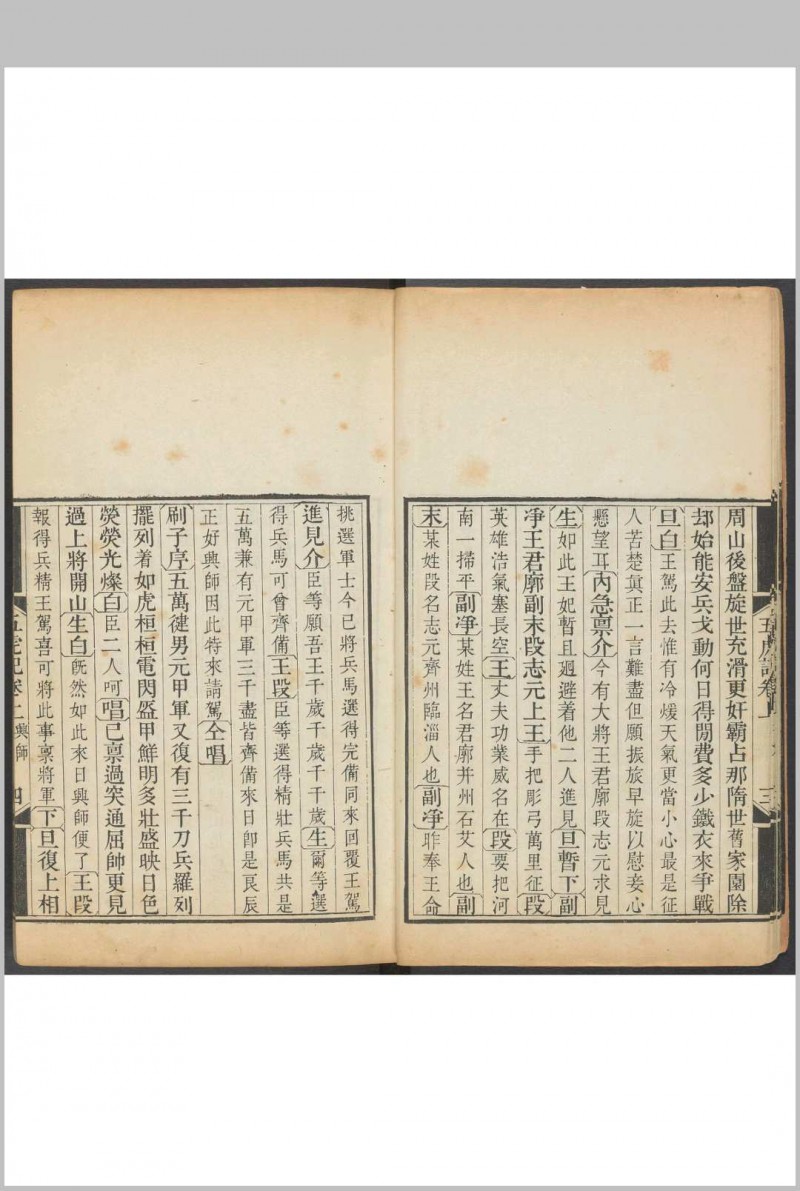 周山後盤旋世充滑更奸霸占那隋世舊家園除
却始能安兵戈動何日得閒費多少鐵衣來爭戰
旦白王駕此去惟有冷煖天氣更當小心最是征
人苦楚眞正一言難盡但願振旅早旋以慰妾心
懸望耳內急禀介今有大將王君廓段志元求見
生如此王妃暫且廻避着他二人進見旦暫下副
凈王君廓副末段志元上王手把彫弓萬里征段
英雄浩氣塞長空王丈夫功業威名在段要把河
南一掃平副凈某姓王名君廓并州石艾人也副
末某姓段名志元齊州臨淄人也副凈昨奉王命
挑選軍士今已將兵馬選得完備同來回覆王駕
進見介臣等願吾王千歲千歲千千歲生爾等選
得兵馬可曾齊備王段臣等選得精壯兵馬共是
五萬兼有元甲軍三千盡皆齊備來日卽是良辰
正好興師因此特來請駕仝唱
刷子序五萬健男元甲軍又復有三千刀兵羅列
擺列着如虎桓桓電閃盔甲鮮明多壯盛映日色
熒熒光燦白臣二人呵唱已禀過突通屈帥更見
過上將開山生白旣然如此來日興師便了王段
報得兵精王駕喜可將此事禀將軍下旦復上相
五虎記卷二興師 四